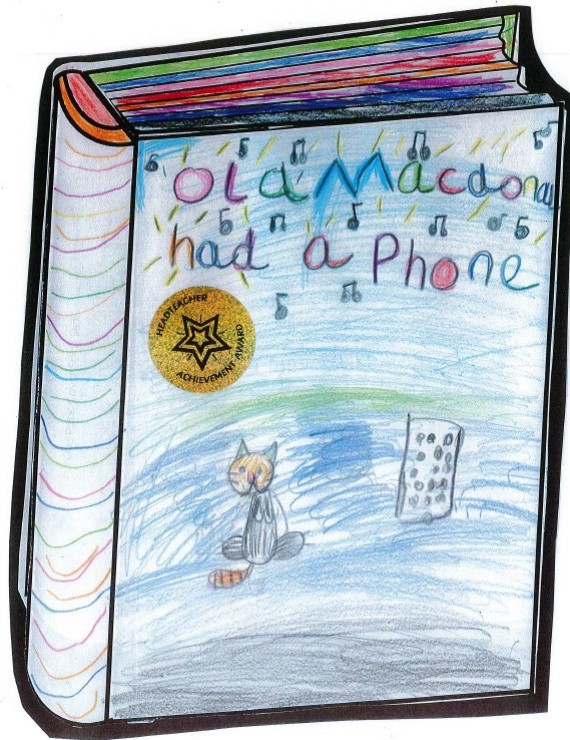 old Macdona
had a Phone
HEADTEACHER
ACHIEVEMENT AWARD